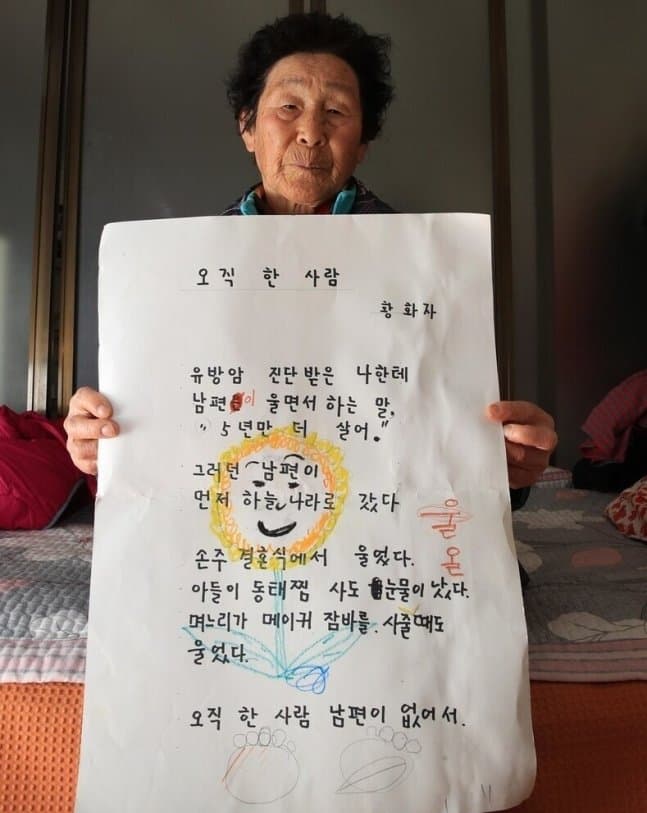 오직 한 사람
황화자
유방암 진단 받은 나한테
남편이 울면서 하는 말,
"5년만 더 살어."
그러던 남편이
먼저 하늘 나라로 갔다
손주 결혼식에서 울었다.
아들이 동태찜 사도 눈물이 났다.
며느리가 메이커 잠바를 사줄 때도
울었다.
오직 한 사람 남편이 없어서.
울
온